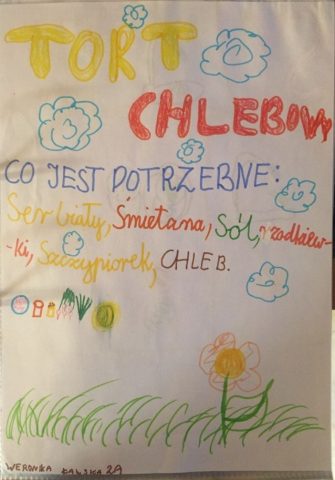 TORT
CHLEBOWY
CO JEST POTRZEBNE:
Ser biały, Śmietana, Sól, rzodkiew-
-ki, Szczypiorek, CHLEB.
WERONIKA 2A